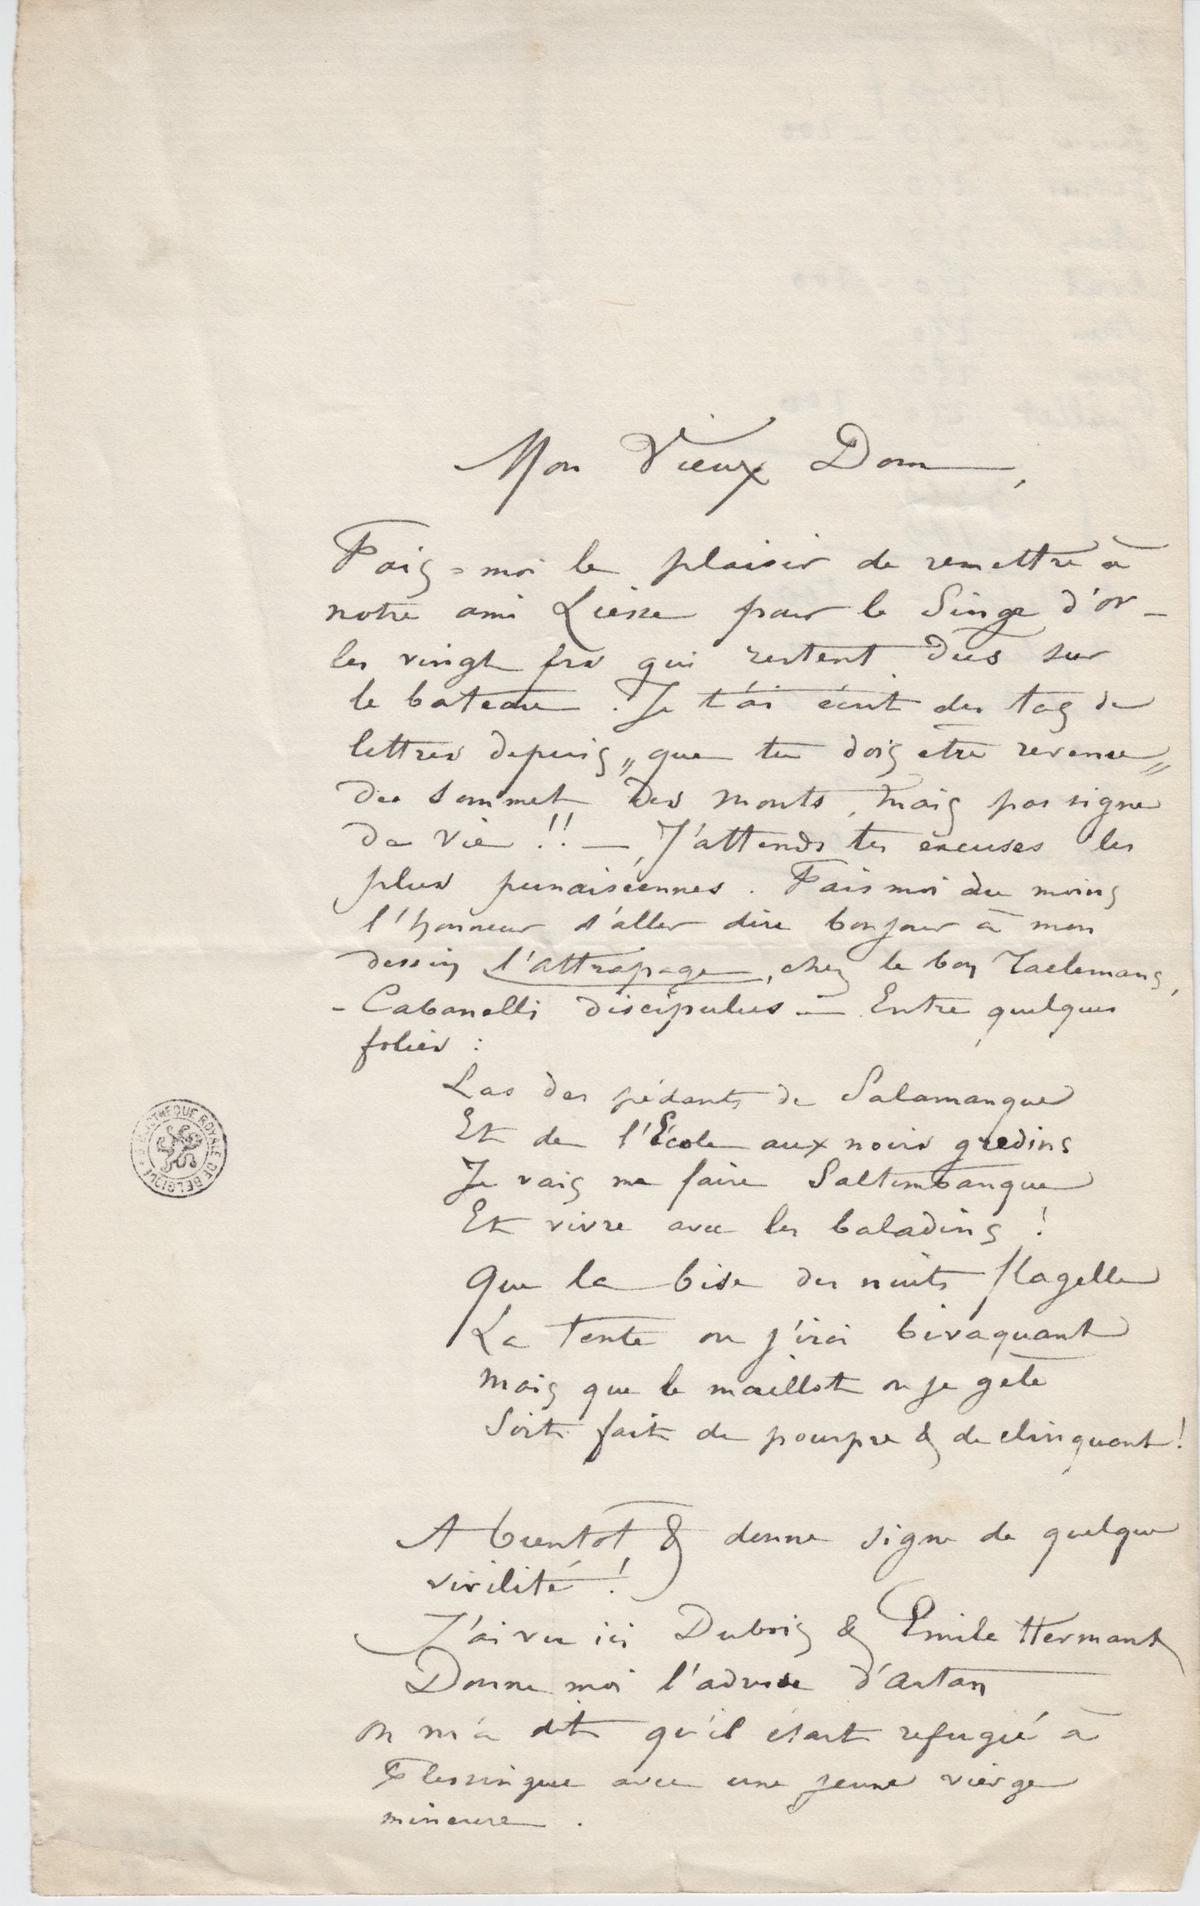 Mon Vieux Dom,
Fais-moi le plaisir de remettre à
notre ami Liesse pour le Singe d'or –
les vingt frs qui restent dus sur
le bateau. Je t'ai écrit des tas de
lettres depuis „que tu dois etre revenu„
du sommet des monts, mais pas signe
de vie !! — J'attends tes excuses les
plus punaiséennes. Fais moi du moins
l'honneur d'aller dire bonjour à mon
dessin l'attrapage, chez le bon Taelemans,
- Cabanelli discipulus — Entre quelques
folies :
Las des pédants de Salamanque
Et de l'École aux noirs gredins
Je vais me faire Saltimbanque
Et vivre avec les baladins !
Que la bise des nuits flagelle
La tente ou j'irai bivaquant
Mais que le maillot ou je gèle
Soit fait de pourpre & de clinquant !
A bientôt & donne signe de quelque
virilité !
J'ai vu ici Dubois & Emile Hermant
Donne moi l'adresse d'Artan
on m'a dit qu'il était refugié à
Flessingue avec une jeune vierge
mineure.
BIBLIOTHEQUE ROYALE DE BELGIQUE